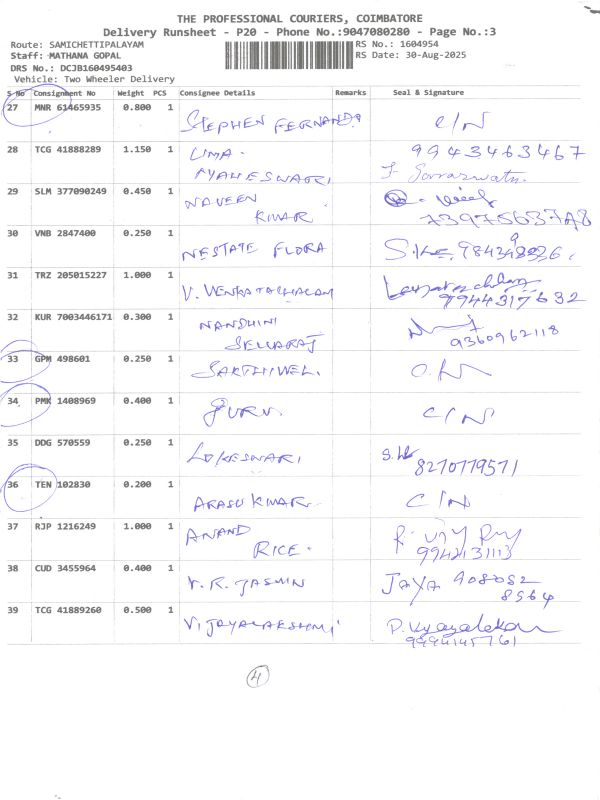 THE PROFESSIONAL COURIERS, COIMBATORE
Delivery Runsheet - P20 - Phone No.:9047080280 - Page No.:3
Route: SAMICHETTIPALAYAM RS No.: 1604954
Staff: MATHANA GOPAL RS Date: 30-Aug-2025
DRS No.: DCJB160495403
Vehicle: Two Wheeler Delivery
S No Consignment No Weight PCS Consignee Details Remarks Seal & Signature
27 MNR 61465935 0.800 1 STEPHEN FERNANDO C/N
28 TCG 41888289 1.150 1 UMA 9943463467
29 SLM 377090249 0.450 1 NAVEEN
KUMAR
30 VNB 2847400 0.250 1 NESTATE FLORA
31 TRZ 205015227 1.000 1 V. VENKATACHALAM
9944317632
32 KUR 7003446171 0.300 1 NANDHINI
SELLARAJ 9360962118
33 GPM 498601 0.250 1 SAKTHIVEL.
34 PMK 1408969 0.400 1 GURU. C/N
35 DDG 570559 0.250 1 LOKESWARI
8270779571
36 TEN 102830 0.200 1 ARASU KUMAR C/N
37 RJP 1216249 1.000 1 ANAND
RICE.
38 CUD 3455964 0.400 1 V. R. JASMIN JAYA 908082
8564
39 TCG 41889260 0.500 1 VIJAYALAKSHMI
4